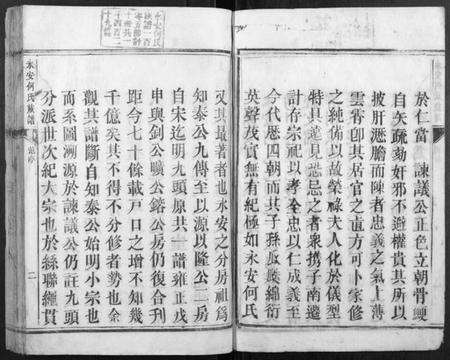 於仁當 諫議公正色立朝骨鯁
自矢疏劾奸邪不避權貴其所以
披肝瀝膽而陳者忠義之氣上薄
雲霄卽其居官之直方可卜家修
之純備以故榮祿夫人化於儀型
特具遠見恐忌之者衆携子南遷
計存宗祀以孝全忠以仁成義至
今代歷四朝而其子孫瓜瓞綿衍
英聲茂實無有紀極如永安何氏
又其最著者也永安之分房祖爲
知泰公九傳至以源以隆公二房
自宋迄明九頭原共一譜雍正戊
申與釗公曠公鎔公房仍復合刋
距今七十餘載戸口之增不知幾
千億矣其不得不分修者勢也余
觀其譜斷自知泰公始明小宗也
而系圖溯源於諫議公仍註九頭
分派世次紀大宗也於絲聯繩貫
永安何氏族譜
二
永安何氏